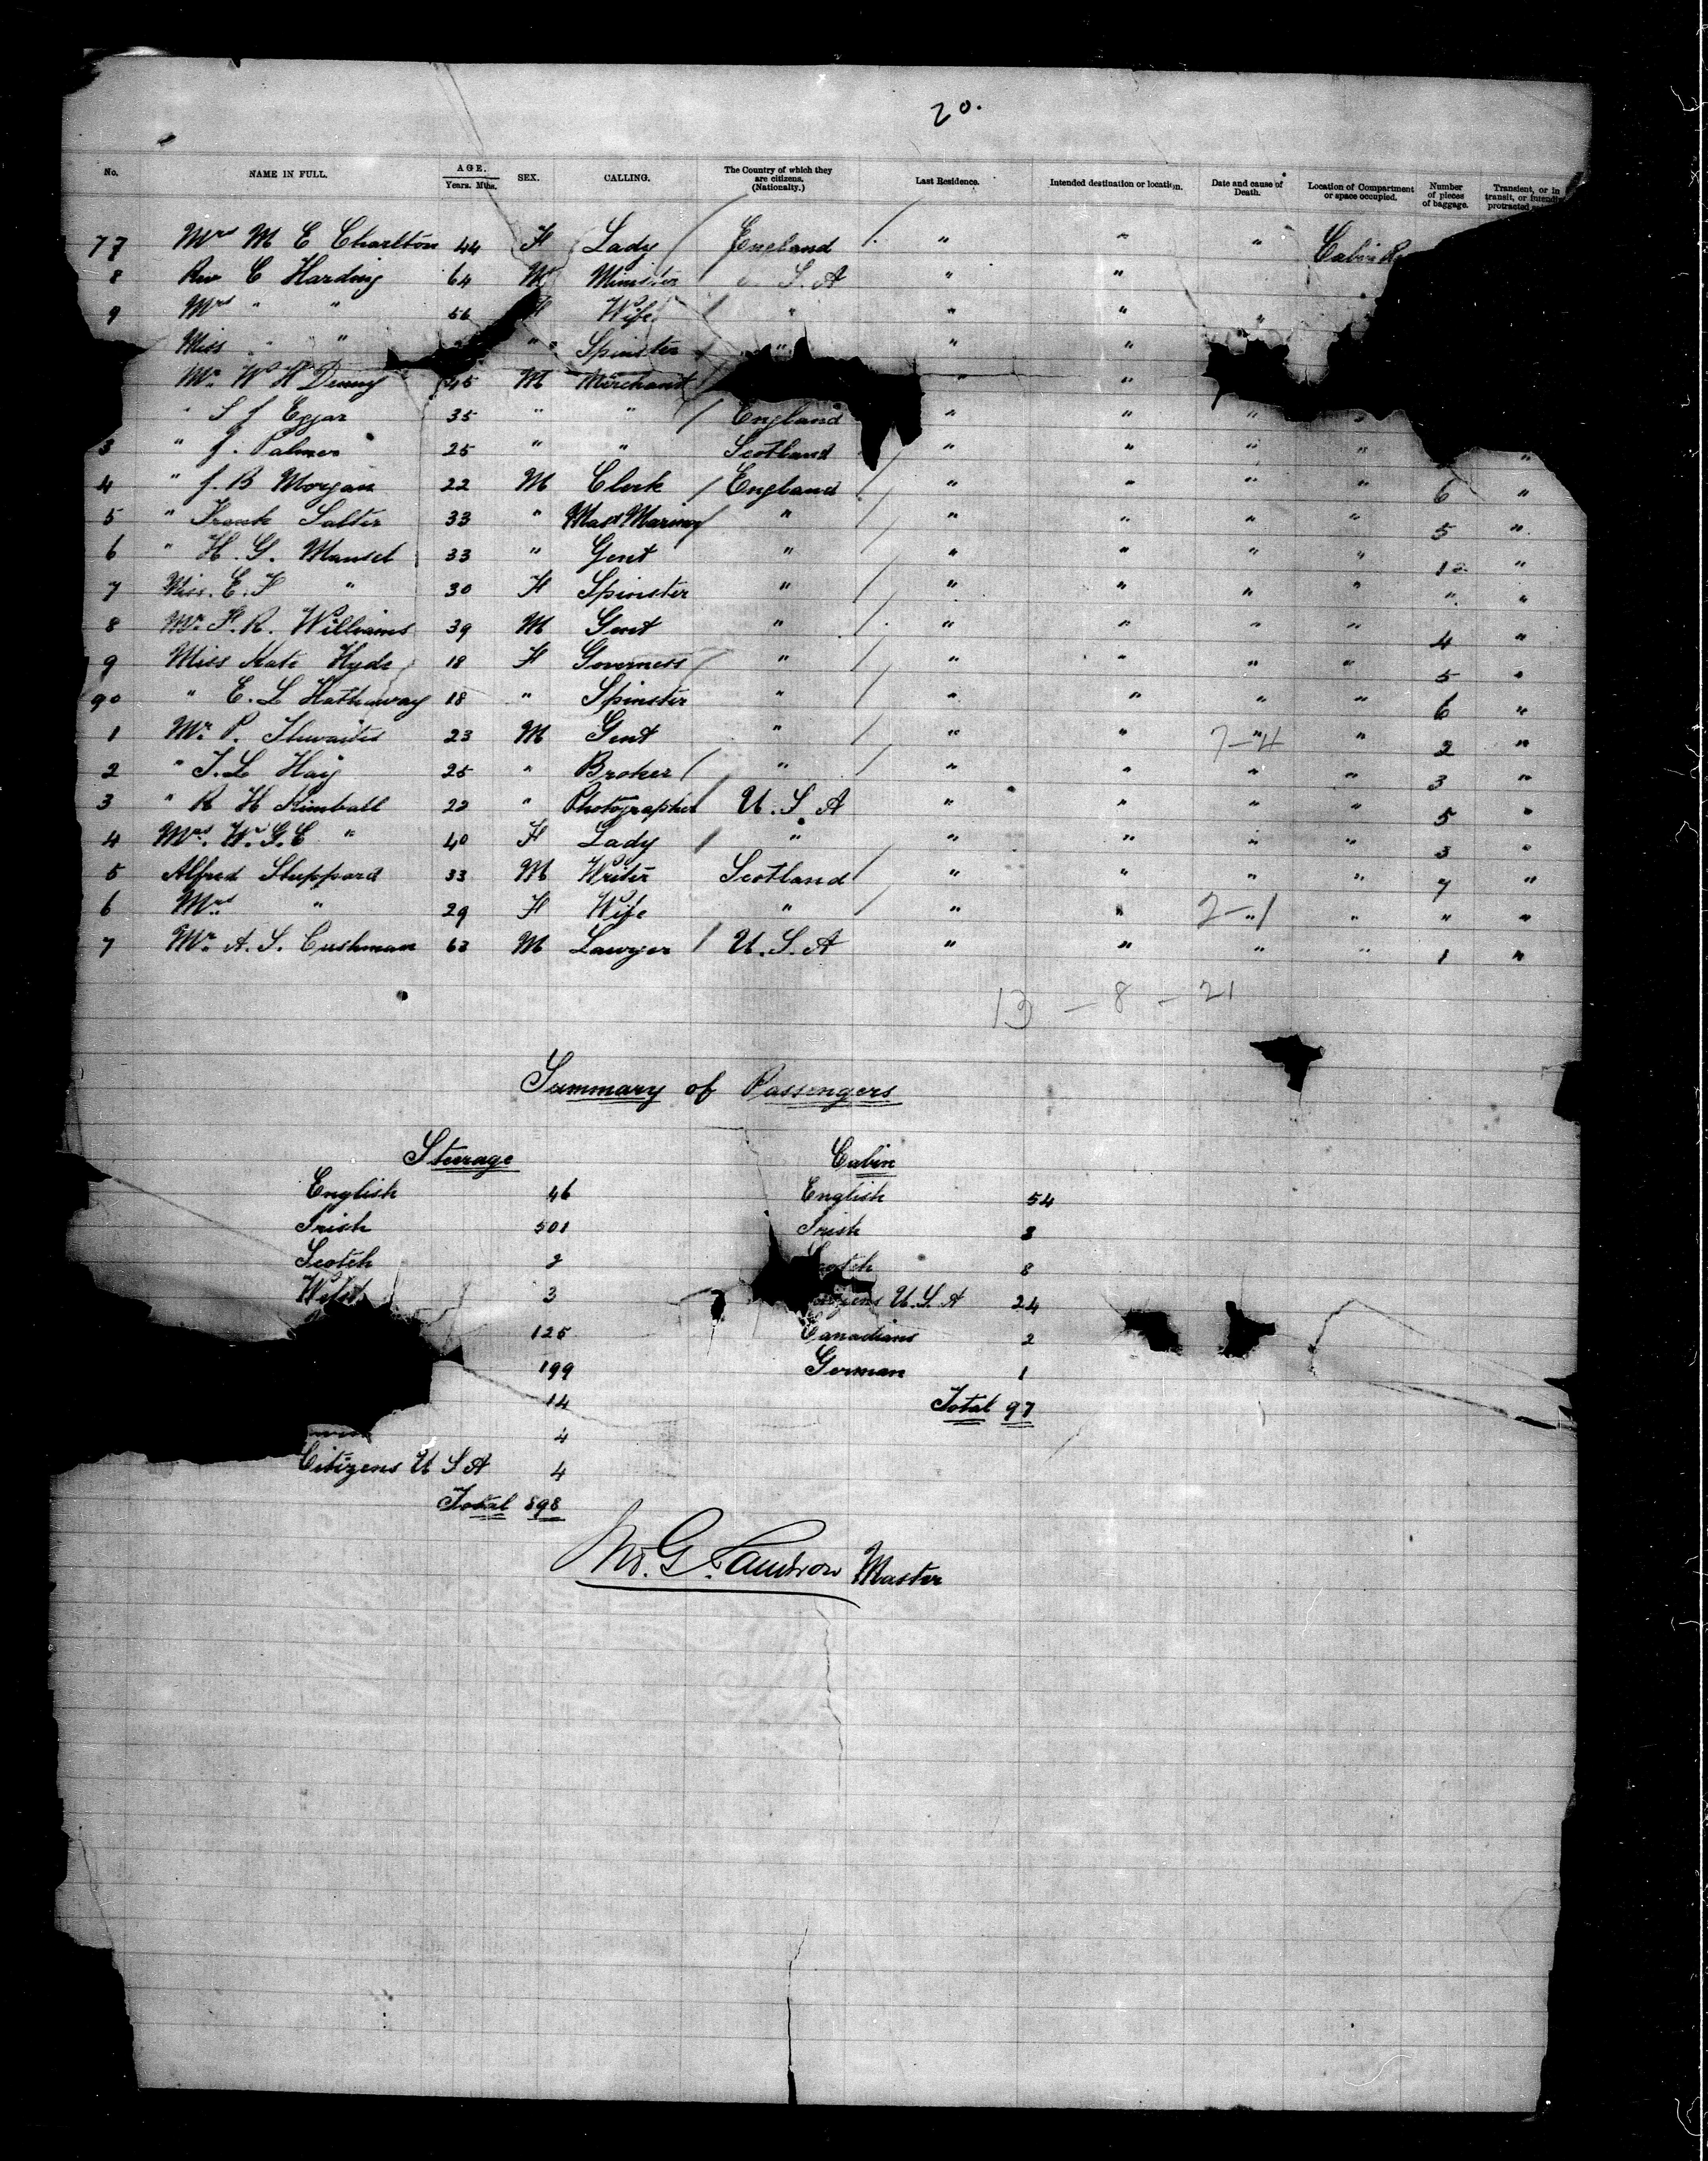 20.
No. NAME IN FULL. AGE. Years. Mths. SEX. CALLING. The Country of which they are citizens. (Nationality.) Last Residence. Intended destination or location. Date and cause of Death. Location of Compartment or space occupied. Number of pieces of baggage. Transient, or in transit, or intending protracted
77 Mrs M E Charlton 44 F Lady England " " " Cabin
8 Rev C Harding 64 M Minister S. A " "
9 Mrs " " 56 F Wife " " " "
Miss " " " Spinster " " "
Mr. W H Denny 45 M Merchant " "
" S J Eggar 35 " " England " " "
3 " J. Palmer 25 " " Scotland " " " " "
4 " J. B Morgan 22 M Clerk England " " " " 6 "
5 " Frank Salter 33 " Mast Mariner " " " " " 5 "
6 " H. G. Mansel 33 " Gent " " " " " 12 "
7 Miss. E. F " 30 F Spinster " " " " " " "
8 Mr. F. R. Williams 39 M Gent " " " " " 4 "
9 Miss Kate Hyde 18 F Governess " " " " " 5 "
90 " E. L Hathaway 18 " Spinster " " " " " 6 "
1 Mr. P. Thwaites 23 M Gent " " " " " 2 "
7-4
2 " T. L Haig 25 " Broker " " " " " 3 "
3 " R H Kimball 22 " Photographer U. S. A " " " " 5 "
4 Mrs. W. G. C " 40 F Lady " " " " " 3 "
5 Alfred Sheppard 33 M Writer Scotland " " " " 7 "
6 Mrs " 29 F Wife " " " " " " "
2-1
7 Mr. A. S. Cushman 63 M Lawyer U. S. A " " " " 1 "
13 - 8 - 21
Summary of Passengers
Steerage Cabin
English 46 English 54
Irish 501 Irish 8
Scotch 2 Scotch 8
Welsh 3 Citizens U. S. A 24
125 Canadians 2
199 German 1
14 Total 97
4
Citizens U S A 4
Total 898
Master